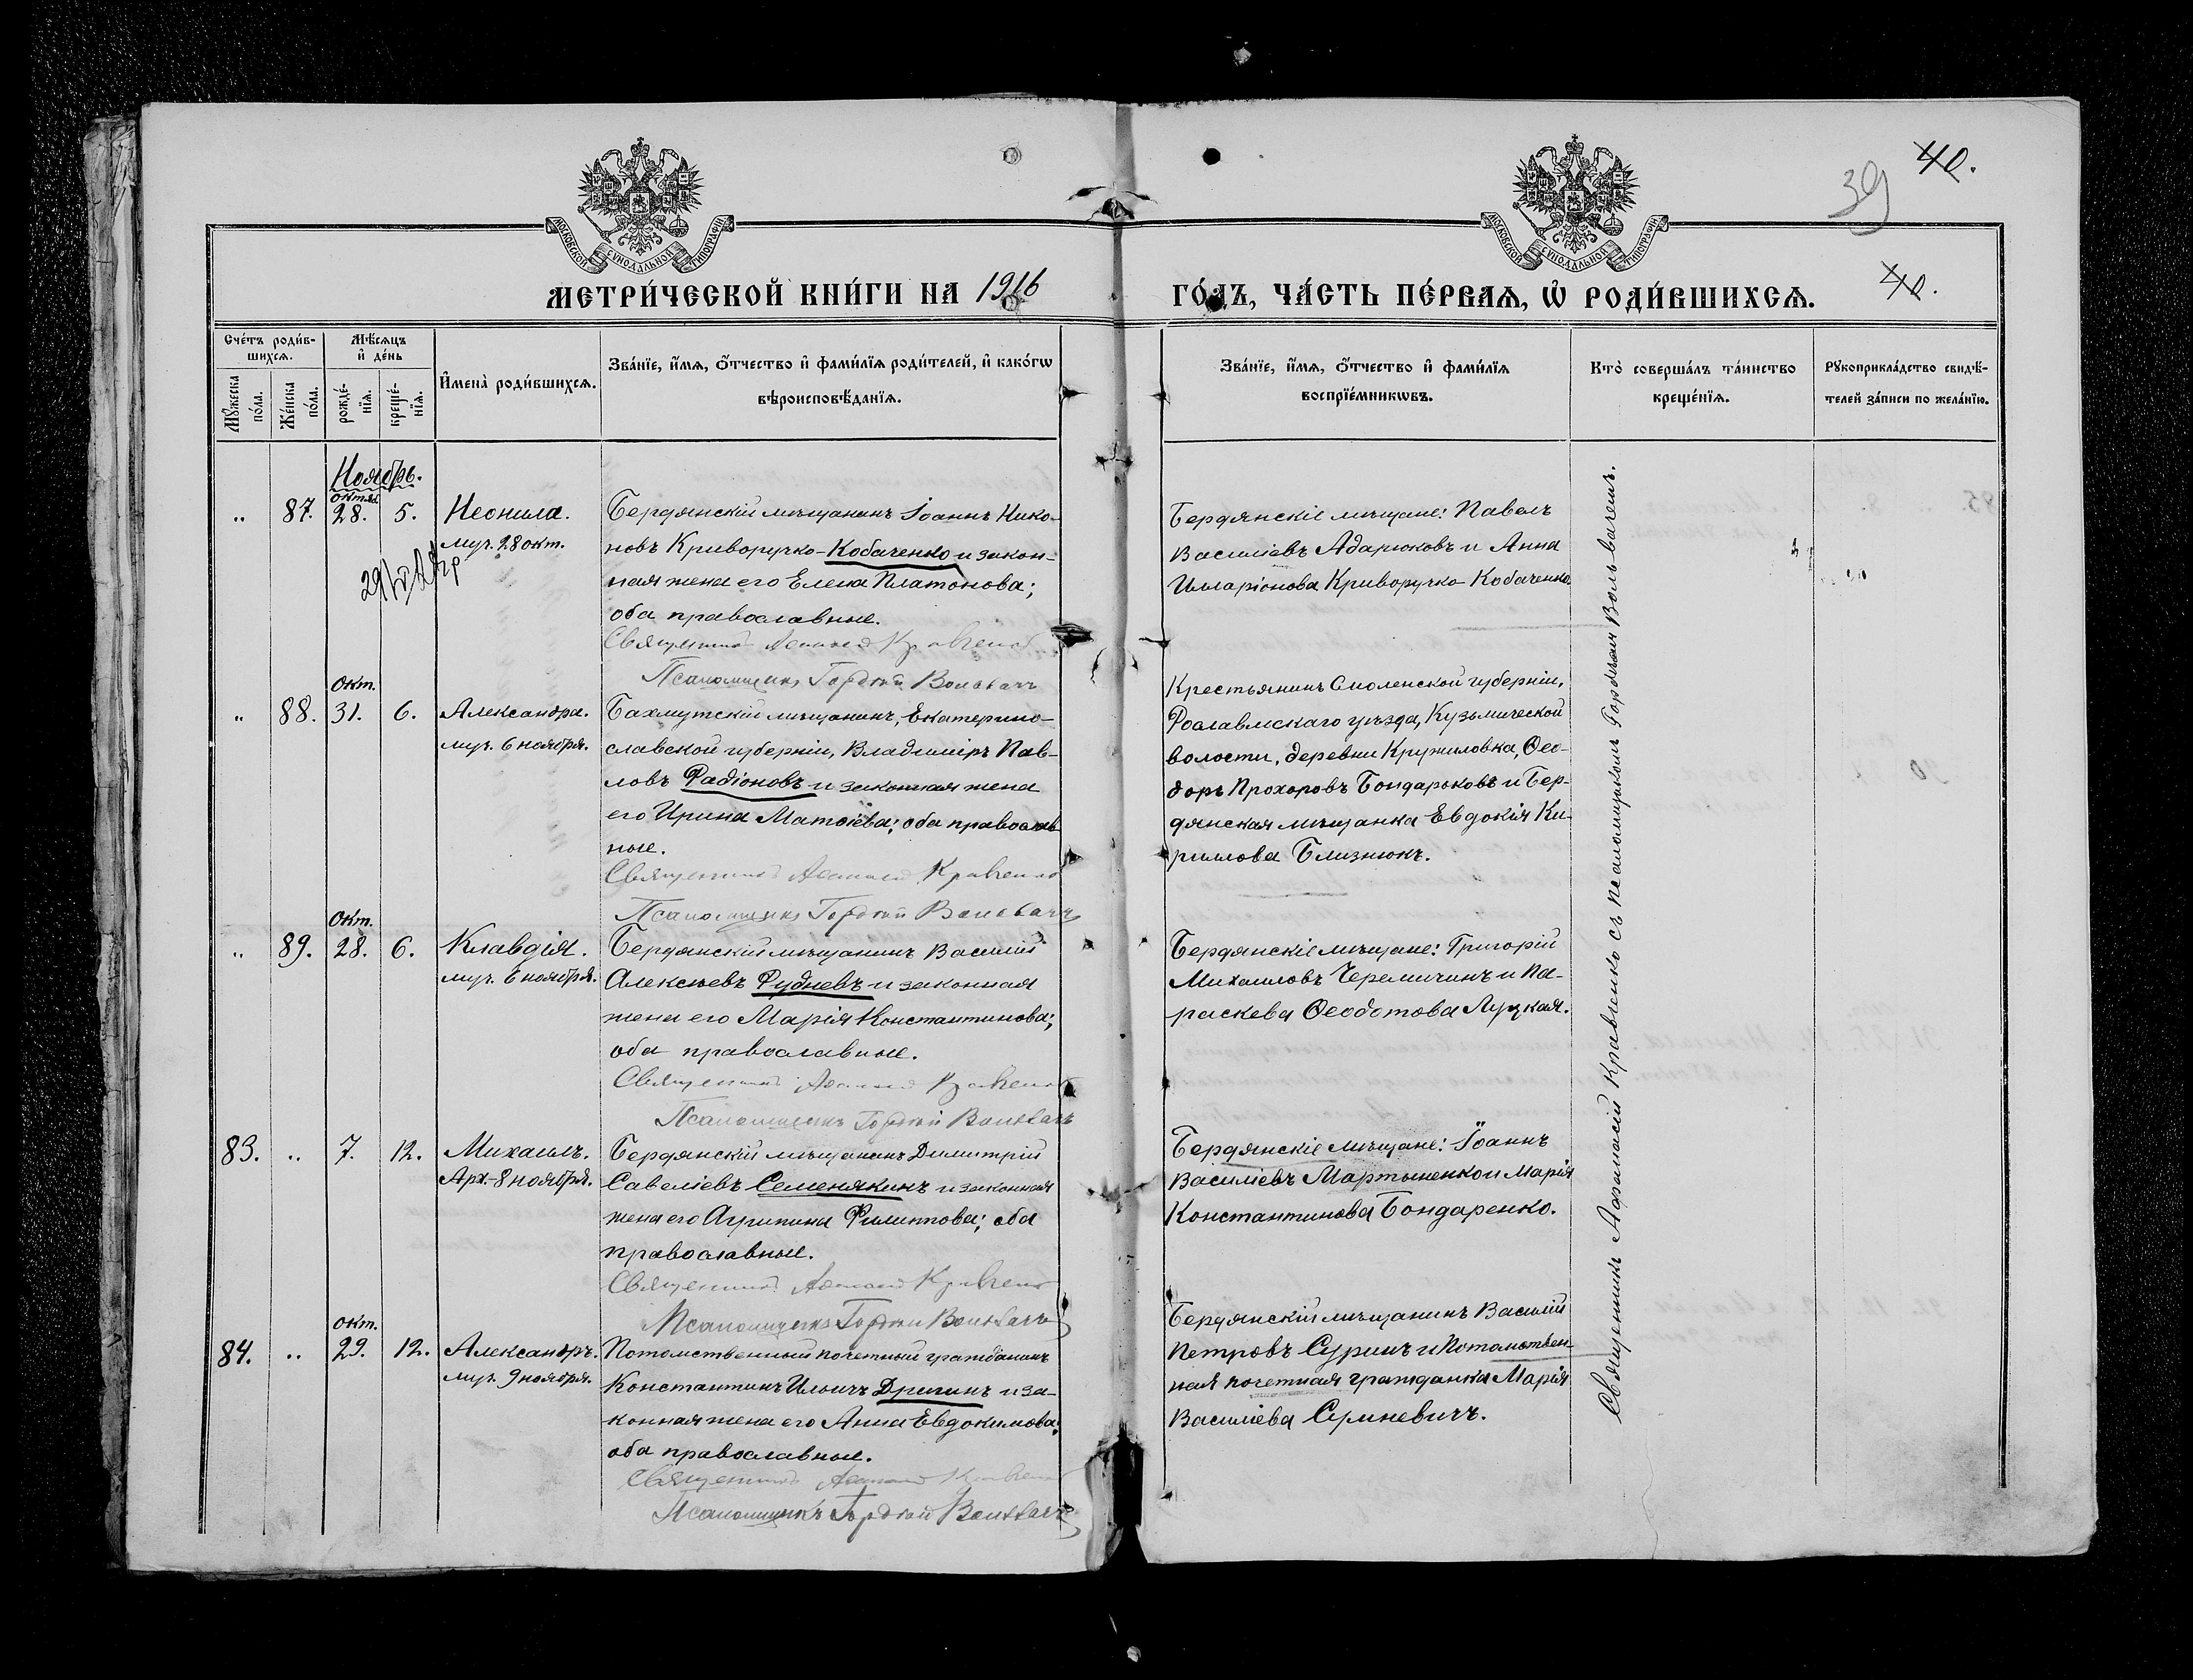 40.
39
МОСКОВСКОЙ СѴНОДАЛЬНОЙ ТИПОГРАФІИ
МОСКОВСКОЙ СѴНОДАЛЬНОЙ ТИПОГРАФІИ
МЕТРИ́ЧЕСКОЙ КНИ́ГИ НА 1916
ГО́ДЪ, ЧА́СТЬ ПЕ́РВАѦ, Ѡ҆ РОДИ́ВШИХСѦ.
40.
Сче́тъ роди́в-
шихсѧ.
Мѣ́сѧцъ
и҆ де́нь
Мꙋ́жеска
по́ла.
Же́нска
по́ла.
рожде́-
нїѧ.
креще́-
нїѧ.
И҆мена̀ роди́вшихсѧ.
Зва́нїе, и҆́мѧ, ѻ҆́тчество и҆ фами́лїѧ роди́телей, и҆ како́гѡ
вѣроисповѣ́данїѧ.
Зва́нїе, и҆́мѧ, ѻ҆́тчество и҆ фами́лїѧ
воспрїе́мникѡвъ.
Кто̀ соверша́лъ та́инство
креще́нїѧ.
Рꙋкоприкла́дство свидѣ́-
телей за́писи по жела́нїю.
Ноябрь.
октяб.
„ 87. 28. 5. Неонила.
муч. 28 окт.
Бердянскій мѣщанинъ Іоаннъ Нико-
новъ Криворучко-Кобаченко и закон-
ная жена его Елена Платонова;
оба православные.
Священникъ Афанасій Кравченко
Псаломщикъ Гордѣй Вольвачъ
Бердянскіе мѣщане: Павелъ
Василіевъ Адарюковъ и Анна
Илларіонова Криворучко-Кобаченко
Окт.
„ 88. 31. 6. Александра.
муч. 6 ноября.
Бахмутскій мѣщанинъ, Екатерино-
славской губерніи, Владиміръ Пав-
ловъ Радіоновъ и законная жена
его Ирина Матѳіева; оба православ-
ные.
Священникъ Афанасій Кравченко
Псаломщикъ Гордѣй Вольвачъ
Крестьянинъ Смоленской губерніи,
Рославльскаго уѣзда, Кузьмической
волости, деревни Кружиловка, Ѳео-
доръ Прохоровъ Бондарьковъ и Бер-
дянская мѣщанка Евдокія Ки-
риллова Близнюкъ.
Окт.
„ 89. 28. 6. Клавдія.
муч. 6 ноября.
Бердянскій мѣщанинъ Василій
Алексѣевъ Рудневъ и законная
жена его Марія Константинова;
оба православные.
Священникъ Афанасій Кравченко
Псаломщикъ Гордѣй Вольвачъ
Бердянскіе мѣщане: Григорій
Михаиловъ Черемичинъ и Па-
раскева Ѳеодотова Луцкая.
83. „ 7. 12. Михаилъ.
Арх. 8 ноября.
Бердянскій мѣщанинъ Димитрій
Савеліевъ Семенякинъ и законная
жена его Агрипина Филиппова; оба
православные.
Священникъ Афанасій Кравченко
Псаломщикъ Гордѣй Вольвачъ
Бердянскіе мѣщане: Іоаннъ
Василіевъ Мартыненко и Марія
Константинова Бондаренко.
окт.
84. „ 29. 12. Александръ.
муч. 9 ноября.
Потомственный почетный гражданинъ
Константинъ Ильичъ Дригинъ и за-
конная жена его Анна Евдокимова;
оба православные.
Священникъ Афанасій Кравченко
Псаломщикъ Гордѣй Вольвачъ
Бердянскій мѣщанинъ Василій
Петровъ Суринъ и Потомствен-
ная почетная гражданка Марія
Василіева Сулиневичъ.
Священникъ Афанасій Кравченко съ псаломщикомъ Гордѣемъ Вольвачемъ.